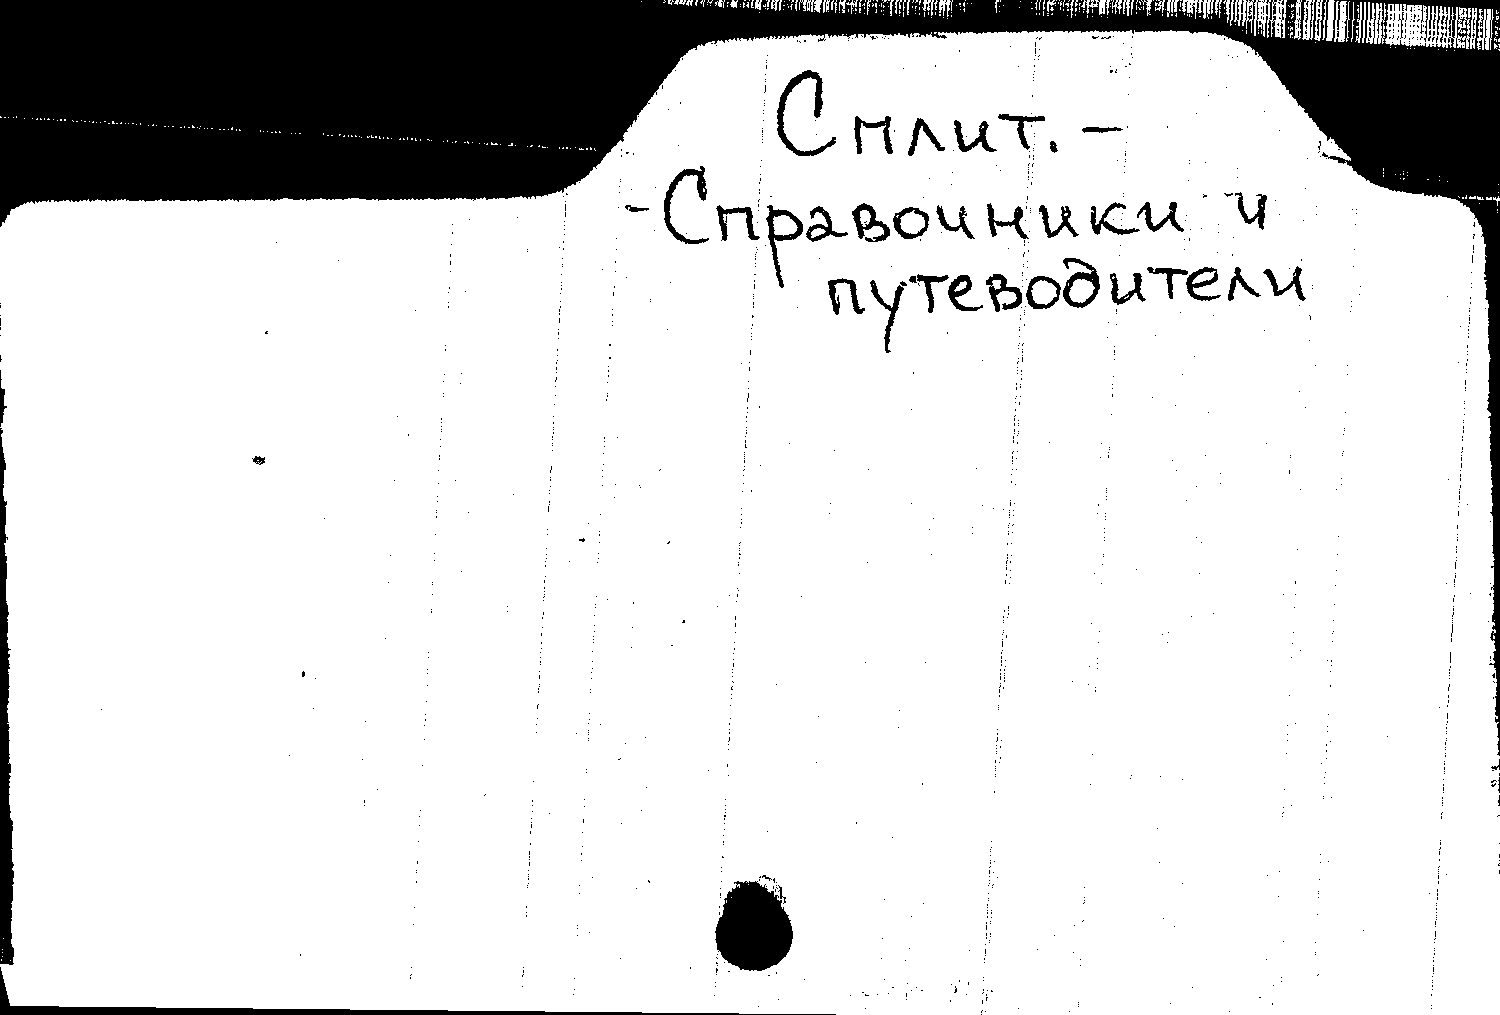 Сплит. -
- Справочники и
путеводители